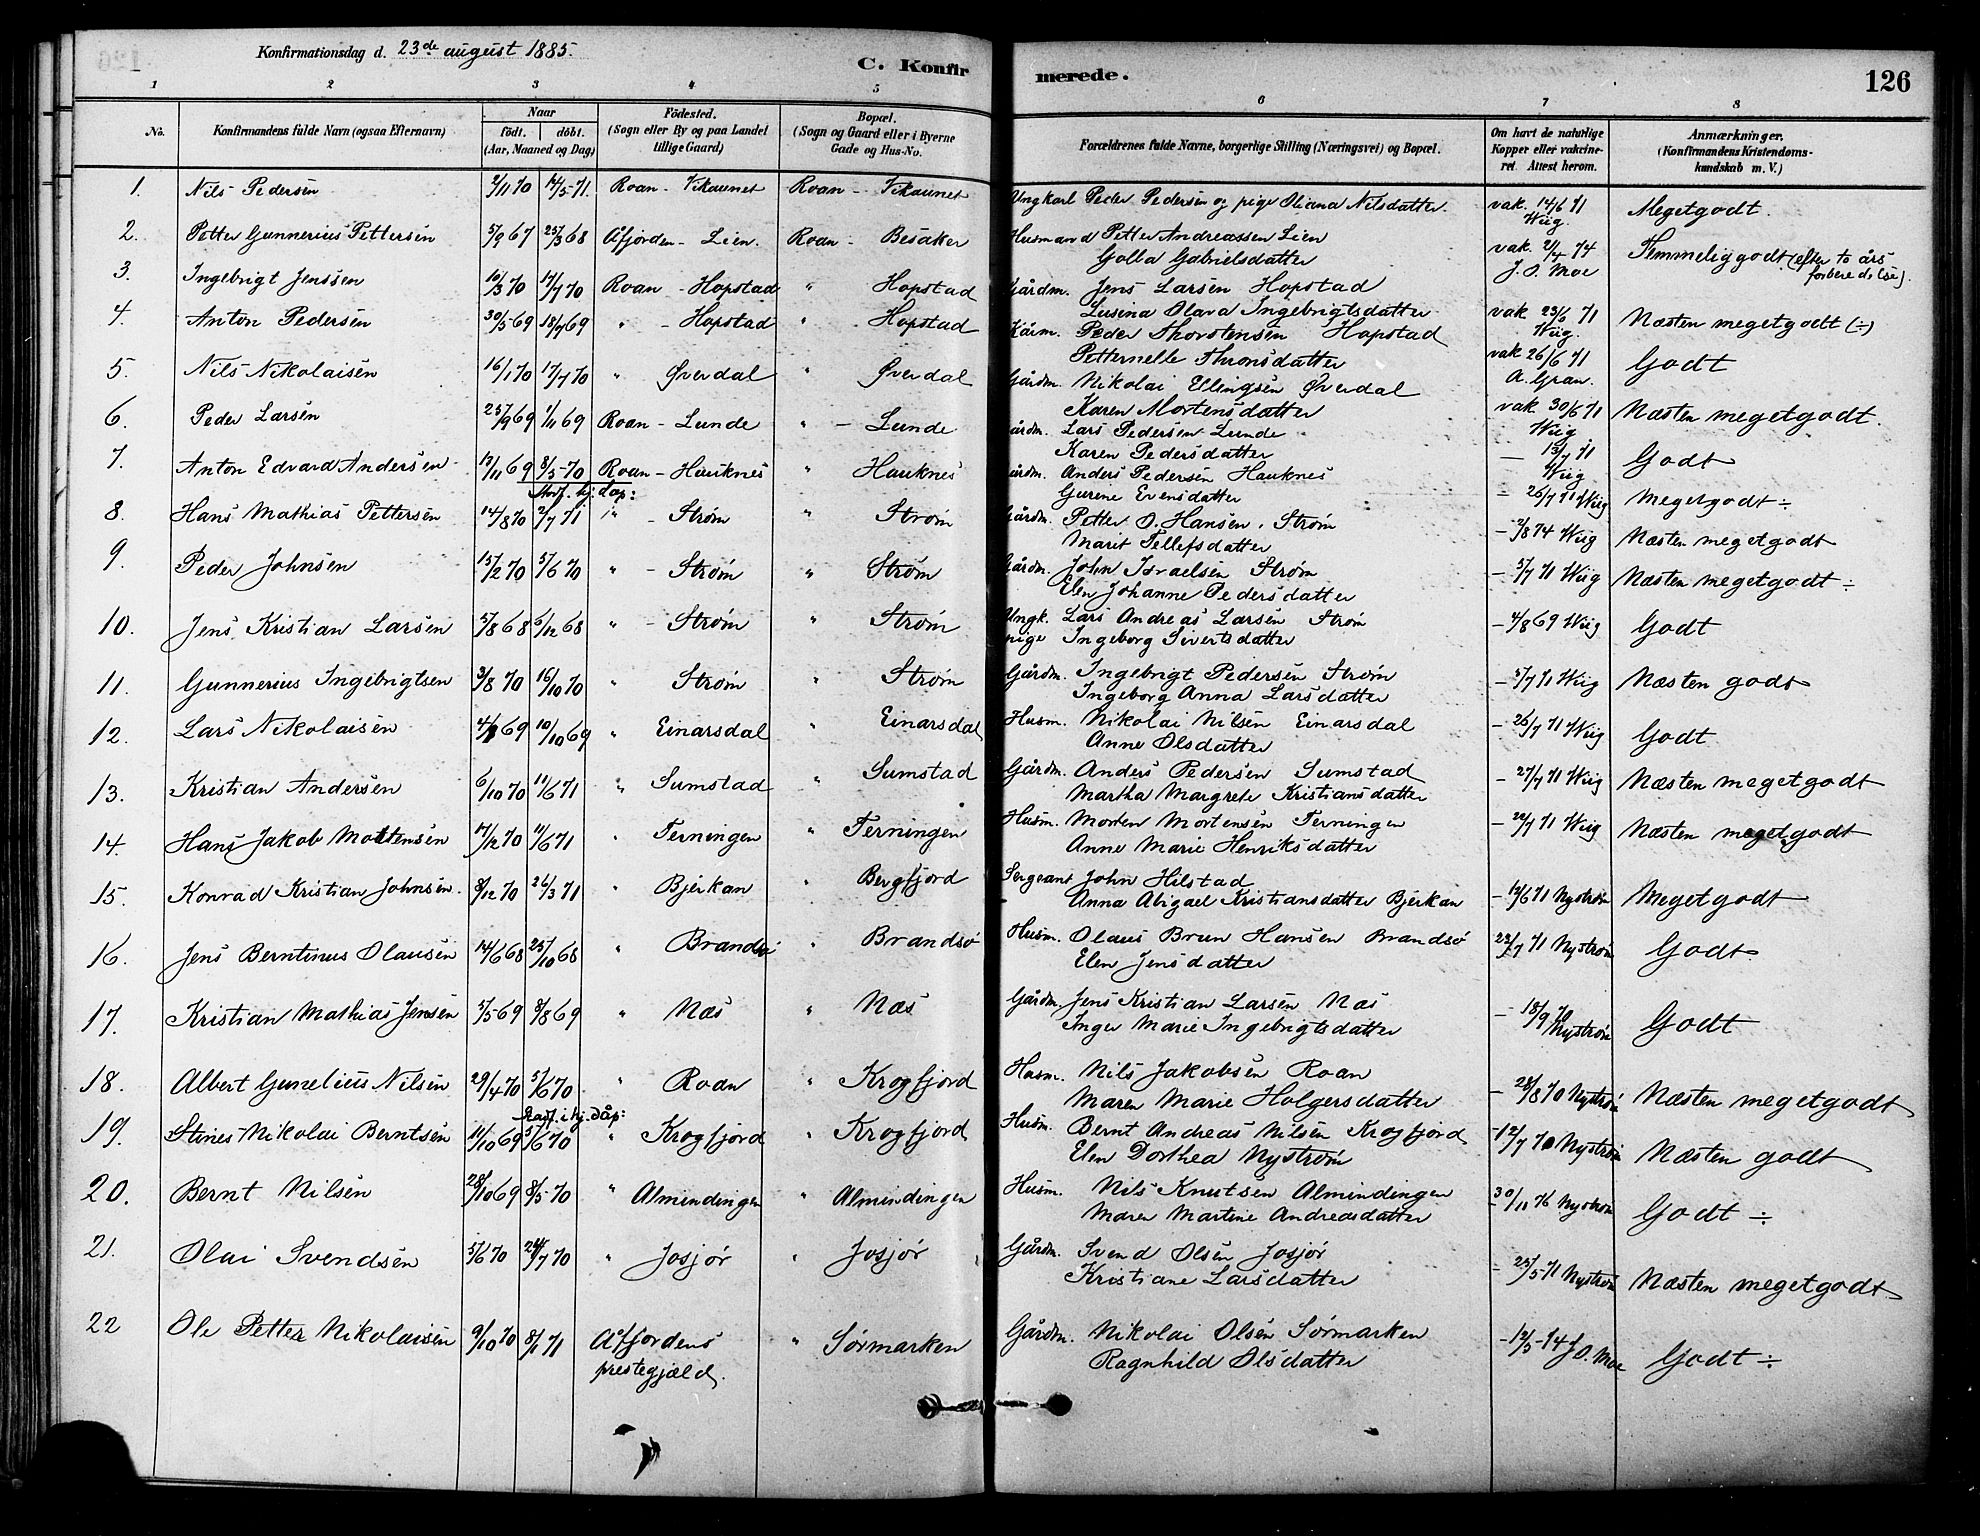 Konfirmationsdag d. 23de august 1885.
C. Konfirmerede.
126
1 2 3 4 5 6 7 8
No. Konfirmandens fulde Navn (ogsaa Efternavn) Naar födt. döbt. (Aar, Maaned og Dag) Födested. (Sogn eller By og paa Landet tillige Gaard) Bopæl. (Sogn og Gaard eller i Byerne Gade og Hus-No. Forældrenes fulde Navne, borgerlige Stilling (Næringsvei) og Bopæl. Om havt de naturlige Kopper eller vaccineret. Attest herom. Anmærkninger. (Konfirmandens Kristendomskundskab m. V.)
1. Nils Pedersen 2/11 70 14/5 71. Roan - Vikaunet Roan - Vikaunet Ungkarl Peder Pedersen og pige Oliana Nilsdatter. vak. 14/6 71 Wiig. Megetgodt.
2. Petter Gunnerius Pettersen 5/9 67 25/3 68 Åfjorden - Lien. Roan - Besaker Husmand Petter Andreassen Lien
Golla Gabrielsdatter vak. 2/4 74 J. O. Moe Temmelig godt (efter to års forberedelse).
3. Ingebrigt Jenssen 10/3 70 17/7 70 Roan - Hopstad " Hopstad Gårdm. Jens Larsen Hopstad
Lusina Olava Ingebrigtsdatter vak 23/6 71 Wiig. Næsten megetgodt (÷)
4. Anton Pedersen 30/5 69 18/7 69 " - Hopstad " Hopstad Kårm. Peder Thorstensen Hopstad
Petternelle Thronsdatter vak 26/6 71 A. Gran. Godt
5. Nils Nikolaisen 16/1 70 17/7 70 " Øverdal " Øverdal Gårdm. Nikolai Ellingsen Øverdal
Karen Mortensdatter vak. 30/6 71 Wiig Næsten megetgodt.
6. Peder Larsen 25/9 69 1/11 69 Roan - Lunde " - Lunde Gårdm. Lars Pedersen Lunde
Karen Pedersdatter - 13/7 71 Wiig Godt
7. Anton Edvard Andersen 12/11 69 8/5 70 Roan - Hauknes " Hauknes Gårdm. Anders Pedersen Hauknes
Gurine Evensdatter - 26/7 71 Wiig Megetgodt ÷
Stadf. hj. dåp:
8. Hans Mathias Pettersen 14/8 70 2/7 71 " - Strøm " Strøm Gårdm. Petter O. Hansen. Strøm
Marit Tellefsdatter - 2/8 74 Wiig Næsten megetgodt
9. Peder Johnsen 15/2 70 5/6 70 " - Strøm " Strøm Gårdm. John Israelsen Strøm
Elen Johanne Pedersdatter - 5/7 71 Wiig Næsten megetgodt ÷
10. Jens Kristian Larsen 5/8 68 6/12 68 " - Strøm " Strøm Ungk. Lars Andreas Larsen Strøm
pige Ingeborg Sivertsdatter - 4/8 69 Wiig Godt
11. Gunnerius Ingebrigtsen 3/8 70 16/10 70 " Strøm " Strøm Gårdm. Ingebrigt Pedersen Strøm
Ingeborg Anna Larsdatter - 5/7 71 Wiig Næsten godt
12. Lars Nikolaisen 69 10/10 69 " Einarsdal " Einarsdal Husm. Nikolai Nilsen Einarsdal
Anne Olsdatter - 26/7 71 Wiig Godt
13. Kristian Andersen 6/10 70 11/6 71 " Sumstad " Sumstad Gårdm. Anders Pedersen Sumstad
Martha Margrete Kristiansdatter - 27/7 71 Wiig Næsten megetgodt
14. Hans Jakob Mortensen 17/12 70 11/6 71 " Terningen " Terningen Husm. Morten Mortensen Terningen
Anne Marie Henriksdatter - 22/7 71 Wiig Næsten megetgodt
15. Konrad Kristian Johnsen. 8/12 70 26/3 71 " Bjerkan " Bergfjord Sergeant John Hilstad
Anna Abigael Kristiansdatter Bjerkan - 12/6 71 Nystrøm Megetgodt
16. Jens Berntinus Olausen 14/6 68 25/10 68 " Brandsø " Brandsø Husm. Olaus Brun Hansen Brandsø
Elen Jensdatter 22/7 71 Nystrøm Godt
17. Kristian Mathias Jenssen 5/5 69 8/8 69 " Næs " Næs Gårdm. Jens Kristian Larsen Næs
Inger Marie Ingebrigtsdatter - 18/9 70 Nystrøm Godt
18. Albert Gunelius Nilsen 29/4 70 5/6 70 " Roan " Krogfjord Husm. Nils Jakobsen Roan
Maren Marie Holgersdatter - 28/8 70 Nystrøm Næsten megetgodt
Stadf. i hj. dåp:
19. Stines Nikolai Berntsen 11/10 69 5/6 70 " Krogfjord " Krogfjord Husm. Bernt Andreas Nilsen Krogfjord
Elen Dorthea Nystrøm - 12/7 70 Nystrøm Næsten godt
20. Bernt Nilsen 28/10 69 8/5 70 " Almindingen " Almindingen Husm. Nils Knutsen Almindingen
Maren Martine Andreasdatter - 30/11 76 Nystrøm Godt ÷
21. Olai Svendsen 5/6 70 24/7 70 " Josjør " Josjør Gårdm. Svend Olsen Josjør
Kristiane Larsdatter - 25/5 71 Nystrøm Næsten megetgodt
22 Ole Petter Nikolaisen 9/10 70 8/1 71 Åfjordens prestegjæld. " Sørmarken Gårdm. Nikolai Olsen Sørmarken
Ragnhild Olsdatter - 12/5 - 74 J. O. Moe Godt ÷